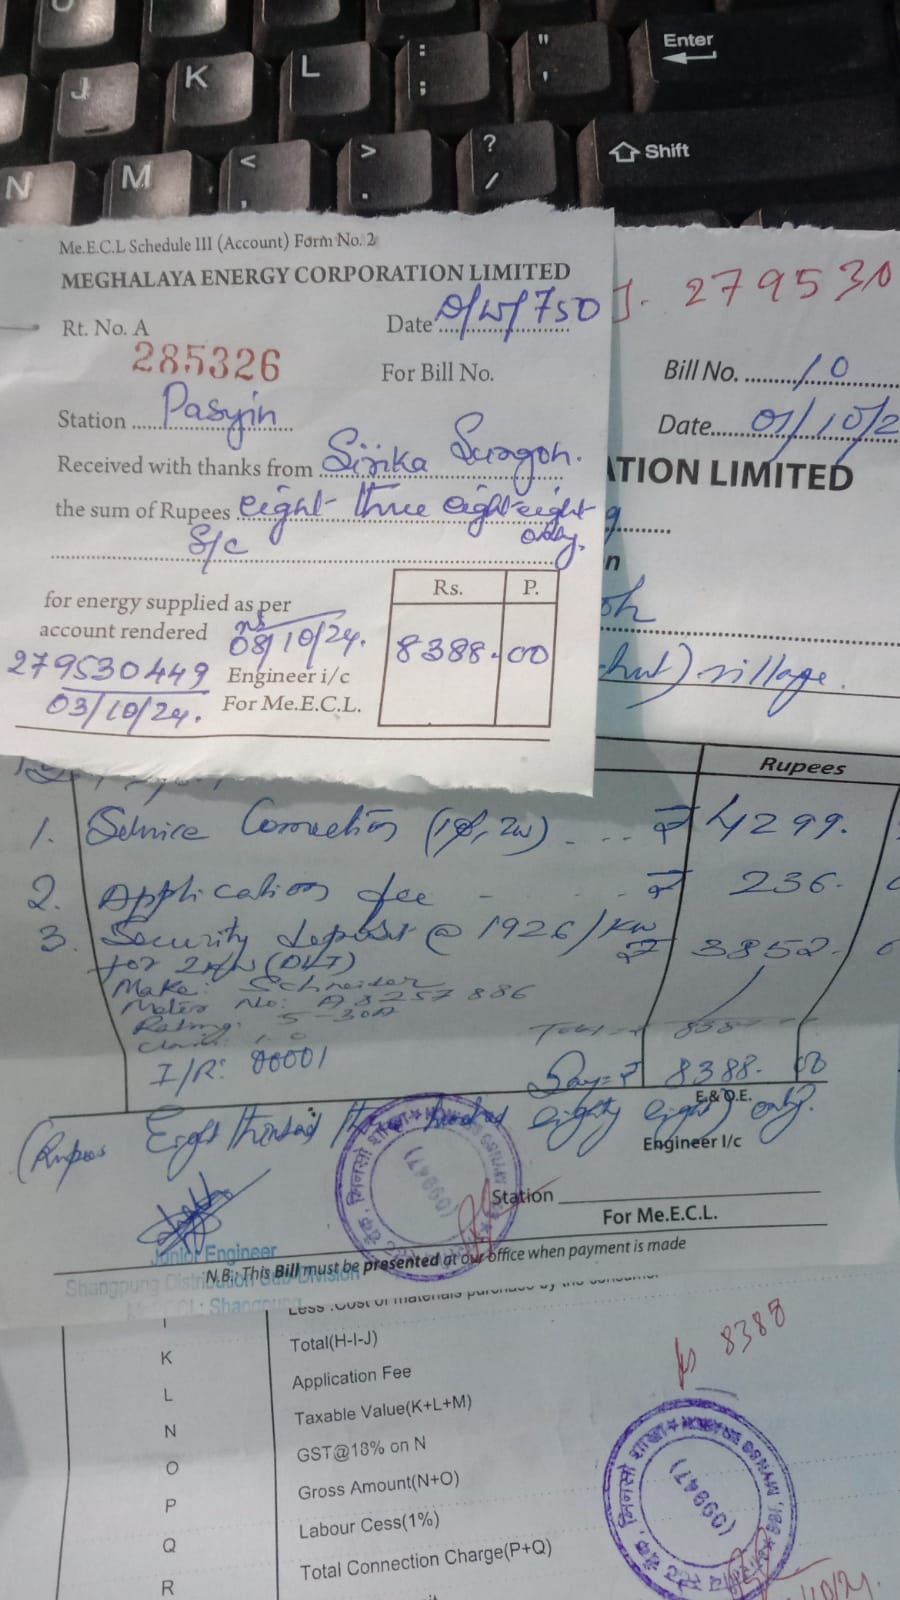 J
K
L
:
;
"
'
Enter
N
M
<
,
>
.
?
/
Shift
Me.E.C.L Schedule III (Account) Form No. 2
MEGHALAYA ENERGY CORPORATION LIMITED
Rt. No. A
285326
Date
For Bill No.
Station Pasyin
Received with thanks from Siiika Sungoh.
the sum of Rupees eight three eight eight
only.
S/c
for energy supplied as per
account rendered
08/10/24.
279530449
Engineer i/c
03/10/24.
For Me.E.C.L.
Rs. P.
8388.00
279530
Bill No. 10
Date 01/10/2
ATION LIMITED
village.
Rupees
1. Service Connection (1φ, 2w) ₹ 4299.
2. Application fee ₹ 236.
3. Security deposit @ 1926/KW ₹ 3852.
for 2KW (DLT)
Make: Schneider
Meter No: 98257886
Rating: 5-30A
I/R: 00001
Say = ₹ 8388. 00
E.& O.E.
(Rupees Eight thousand three hundred eighty eight) only.
Engineer I/c
Station
For Me.E.C.L.
Junior Engineer
Shangpung Distribution Sub-Division
N.B.: This Bill must be presented at our office when payment is made
Less :Cost of materials purchased by the consumer
K Total(H-I-J)
L Application Fee
N Taxable Value(K+L+M)
O GST@18% on N
P Gross Amount(N+O)
Q Labour Cess(1%)
R Total Connection Charge(P+Q)
Rs 8388
(09947)
(09947)